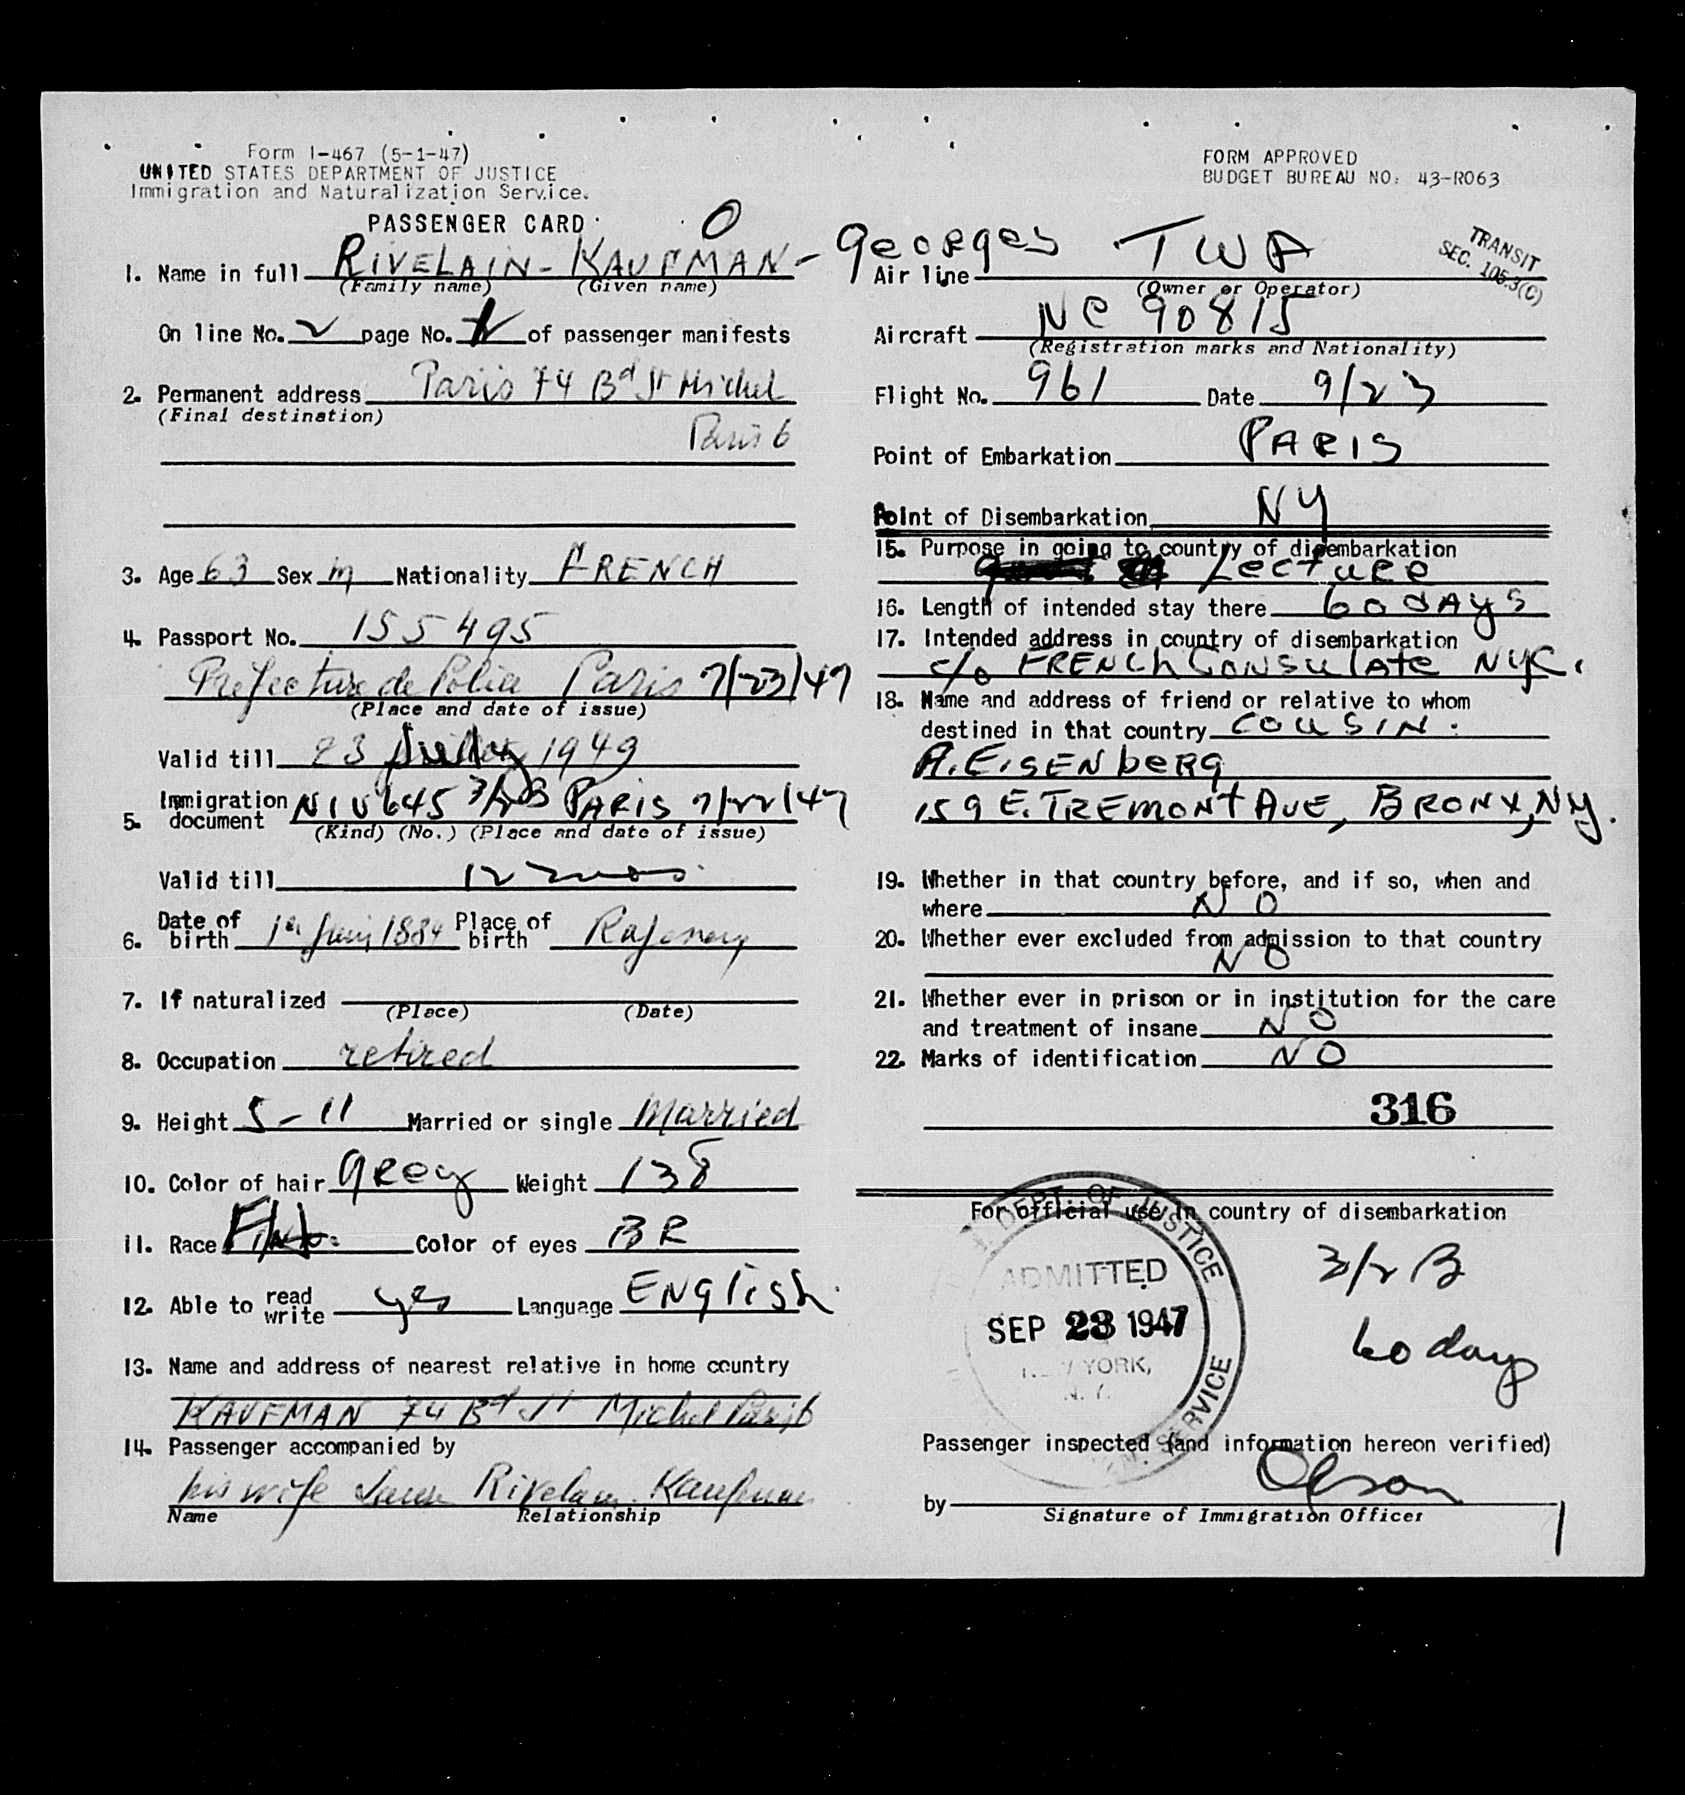 Form I-467 (5-1-47)
UNITED STATES DEPARTMENT OF JUSTICE
Immigration and Naturalization Service.
PASSENGER CARD
O
1. Name in full RIVELAIN - KAUFMAN - Georges
(Family name) (Given name)
On line No. 2 page No. of passenger manifests
2. Permanent address Paris 74 Bd St Michel
(Final destination)
Paris 6
3. Age 63 Sex m Nationality FRENCH
4. Passport No. 155495
Prefecture de Police Paris 7/23/47
(Place and date of issue)
Valid till 23 July 1949
5. Immigration document NIV 645 3/2 B PARIS 7/22/47
(Kind) (No.) (Place and date of issue)
Valid till 12 mos.
6. Date of birth 1884 Place of birth
7. If naturalized
(Place) (Date)
8. Occupation retired
9. Height 5-11 Married or single Married
10. Color of hair GREY Weight 138
11. Race Color of eyes BR
12. Able to read write yes Language ENGlish
13. Name and address of nearest relative in home country
KAUFMAN 74 Bd St Michel Paris 6
14. Passenger accompanied by
his wife Rivelain Kaufman
Name Relationship
FORM APPROVED
BUDGET BUREAU NO. 43-R063
TRANSIT
SEC. 105.3(C)
Air line TWA
(Owner or Operator)
Aircraft NC 90815
(Registration marks and Nationality)
Flight No. 961 Date 9/23
Point of Embarkation PARIS
Point of Disembarkation NY
15. Purpose in going to country of disembarkation
Lecture
16. Length of intended stay there 60 dAys
17. Intended address in country of disembarkation
c/o FRENCh CONSULAte NYC.
18. Name and address of friend or relative to whom
destined in that country COUSIN:
A. EISENbERG
159 E. TREMONT AVE, BRONX, NY.
19. Whether in that country before, and if so, when and
where NO
20. Whether ever excluded from admission to that country
NO
21. Whether ever in prison or in institution for the care
and treatment of insane NO
22. Marks of identification NO
316
For official use in country of disembarkation
DEPT. OF JUSTICE
ADMITTED
SEP 23 1947
NEW YORK,
N. Y.
SERVICE
3/2 B
60 days
Passenger inspected (and information hereon verified)
by Olson
Signature of Immigration Officer